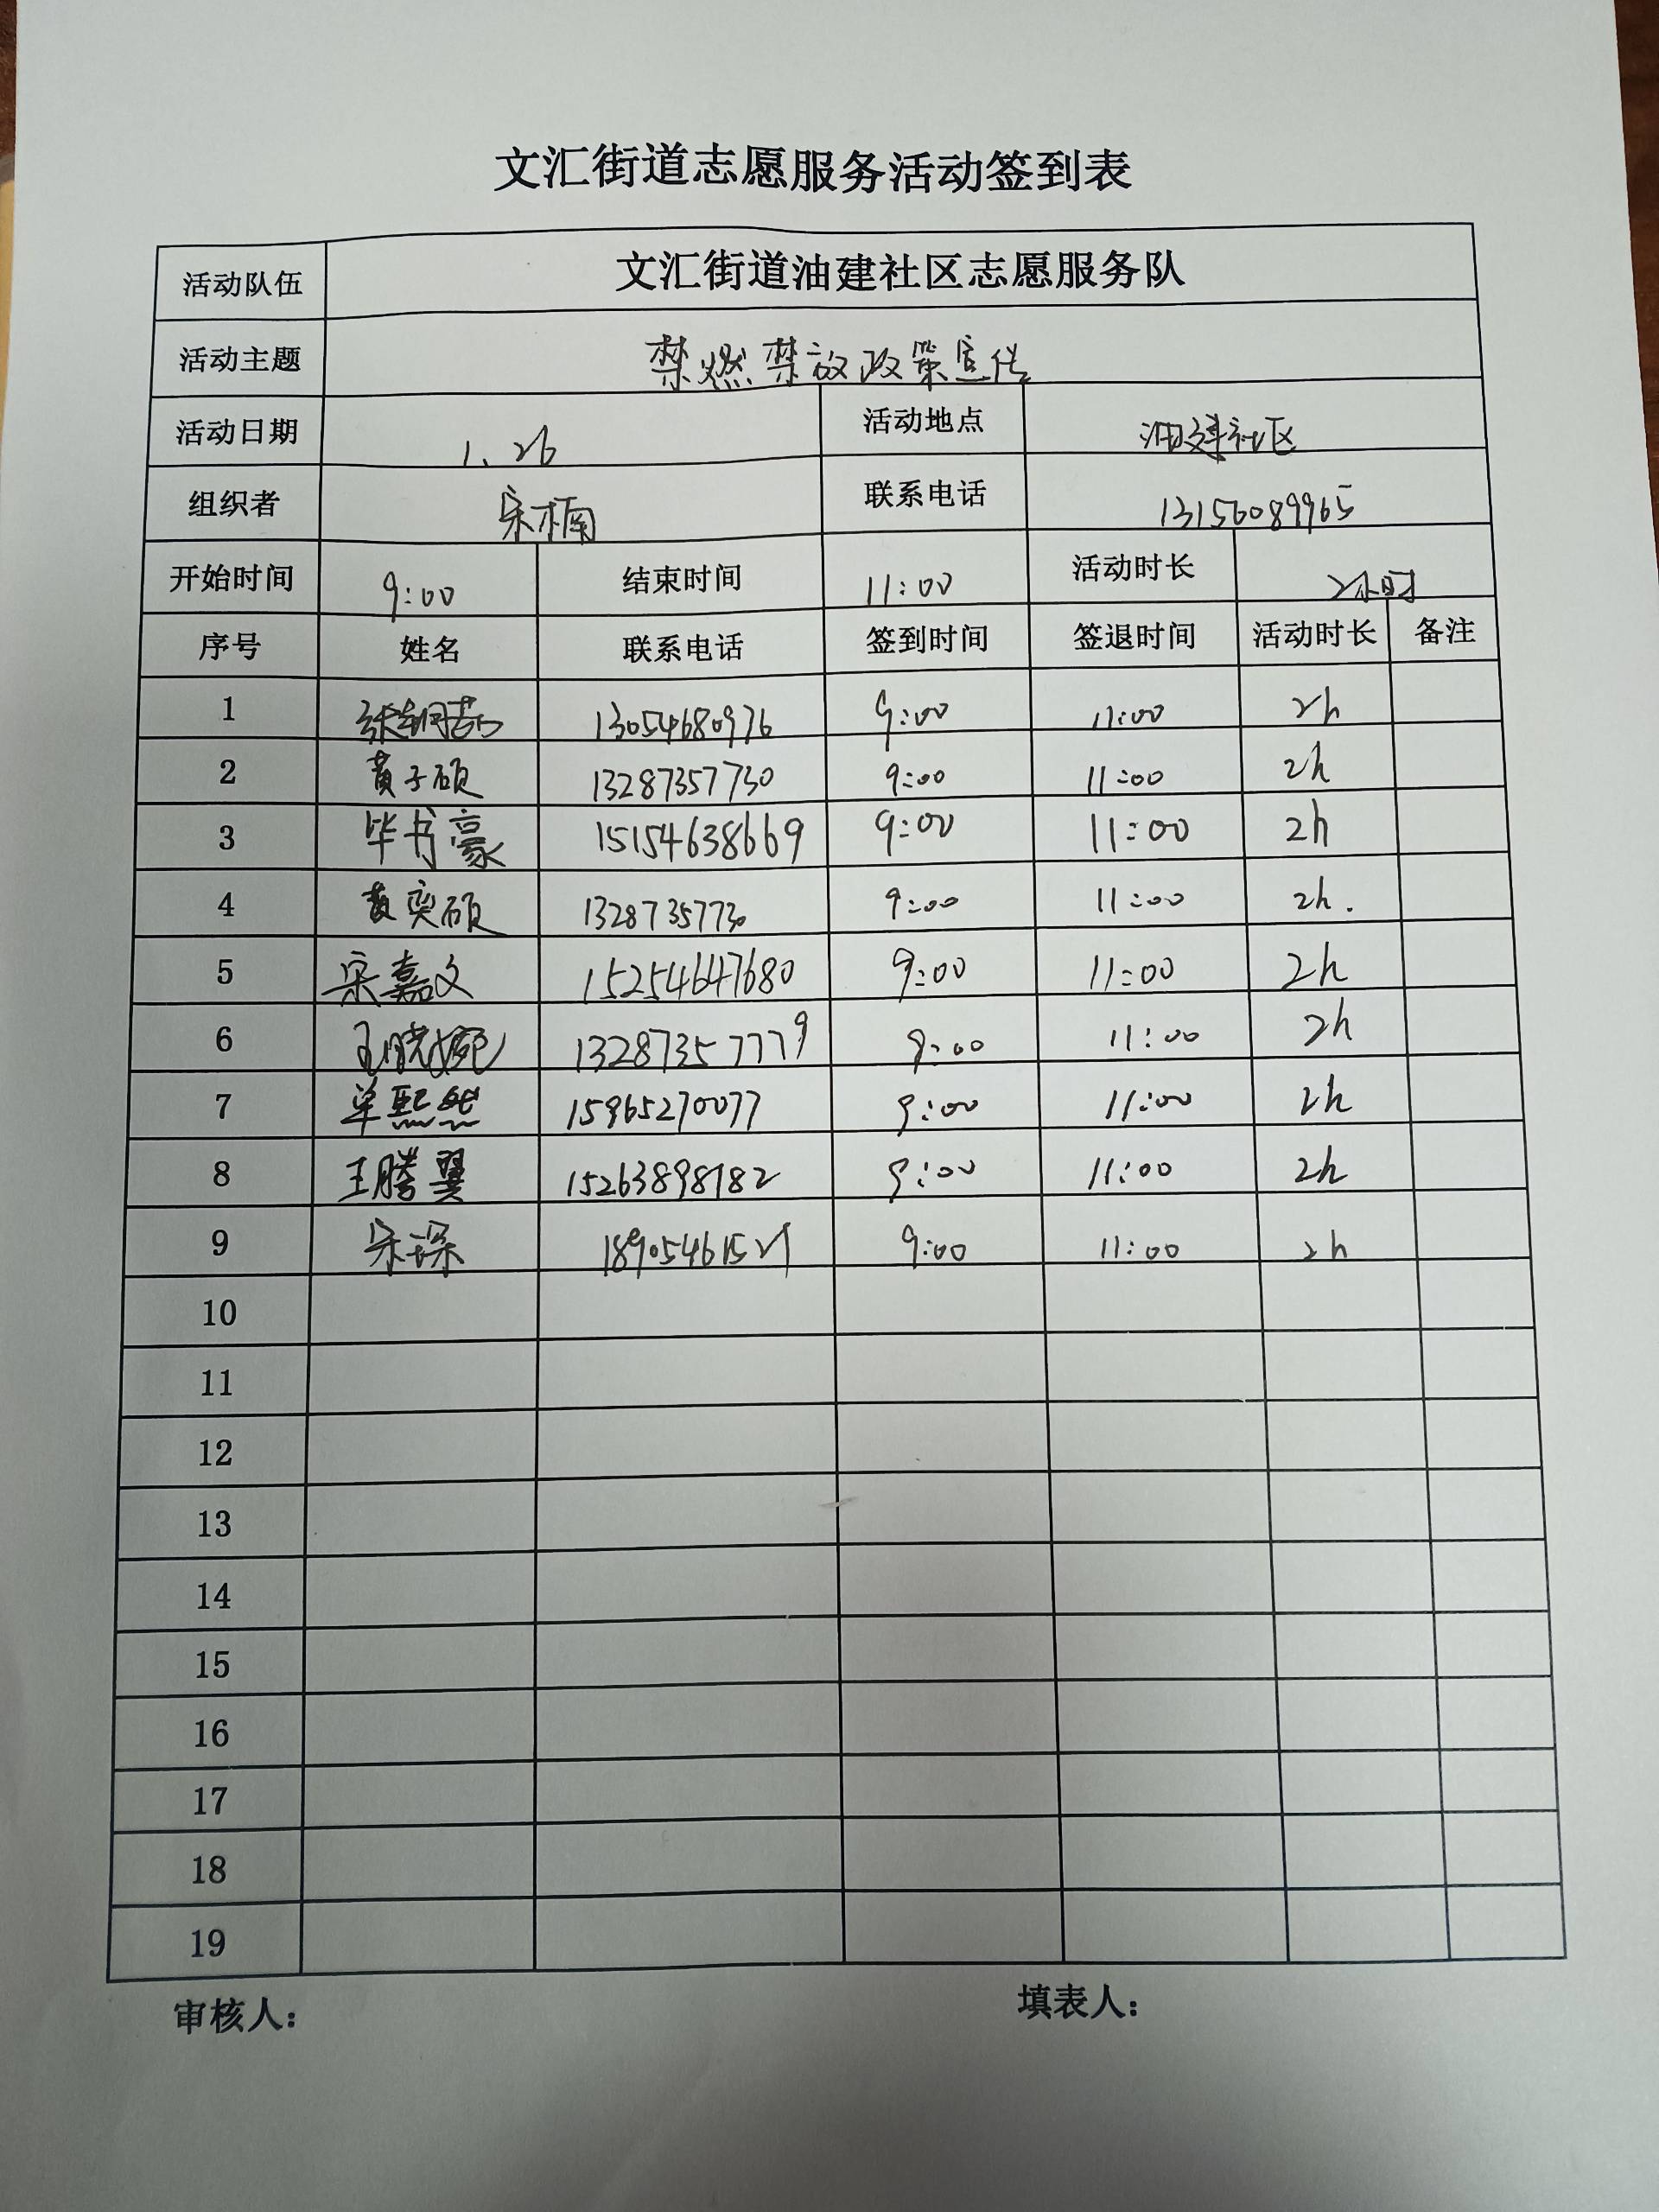 文汇街道志愿服务活动签到表
活动队伍 文汇街道油建社区志愿服务队
活动主题 禁燃禁放政策宣传
活动日期 1、26 活动地点 油建社区
组织者 宋楠 联系电话 13156089965
开始时间 9:00 结束时间 11:00 活动时长 2小时
序号 姓名 联系电话 签到时间 签退时间 活动时长 备注
1 13054680976 9:00 11:00 2h
2 黄子硕 13287357730 9:00 11:00 2h
3 毕书豪 15154638669 9:00 11:00 2h
4 黄奕硕 13287357730 9:00 11:00 2h.
5 宋嘉文 15254647680 9:00 11:00 2h
6 王晓婉 13287357779 9:00 11:00 2h
7 单熙然 15965270077 9:00 11:00 2h
8 王腾翼 15263898982 9:00 11:00 2h
9 宋琛 18905461521 9:00 11:00 2h
10
11
12
13
14
15
16
17
18
19
审核人： 填表人：